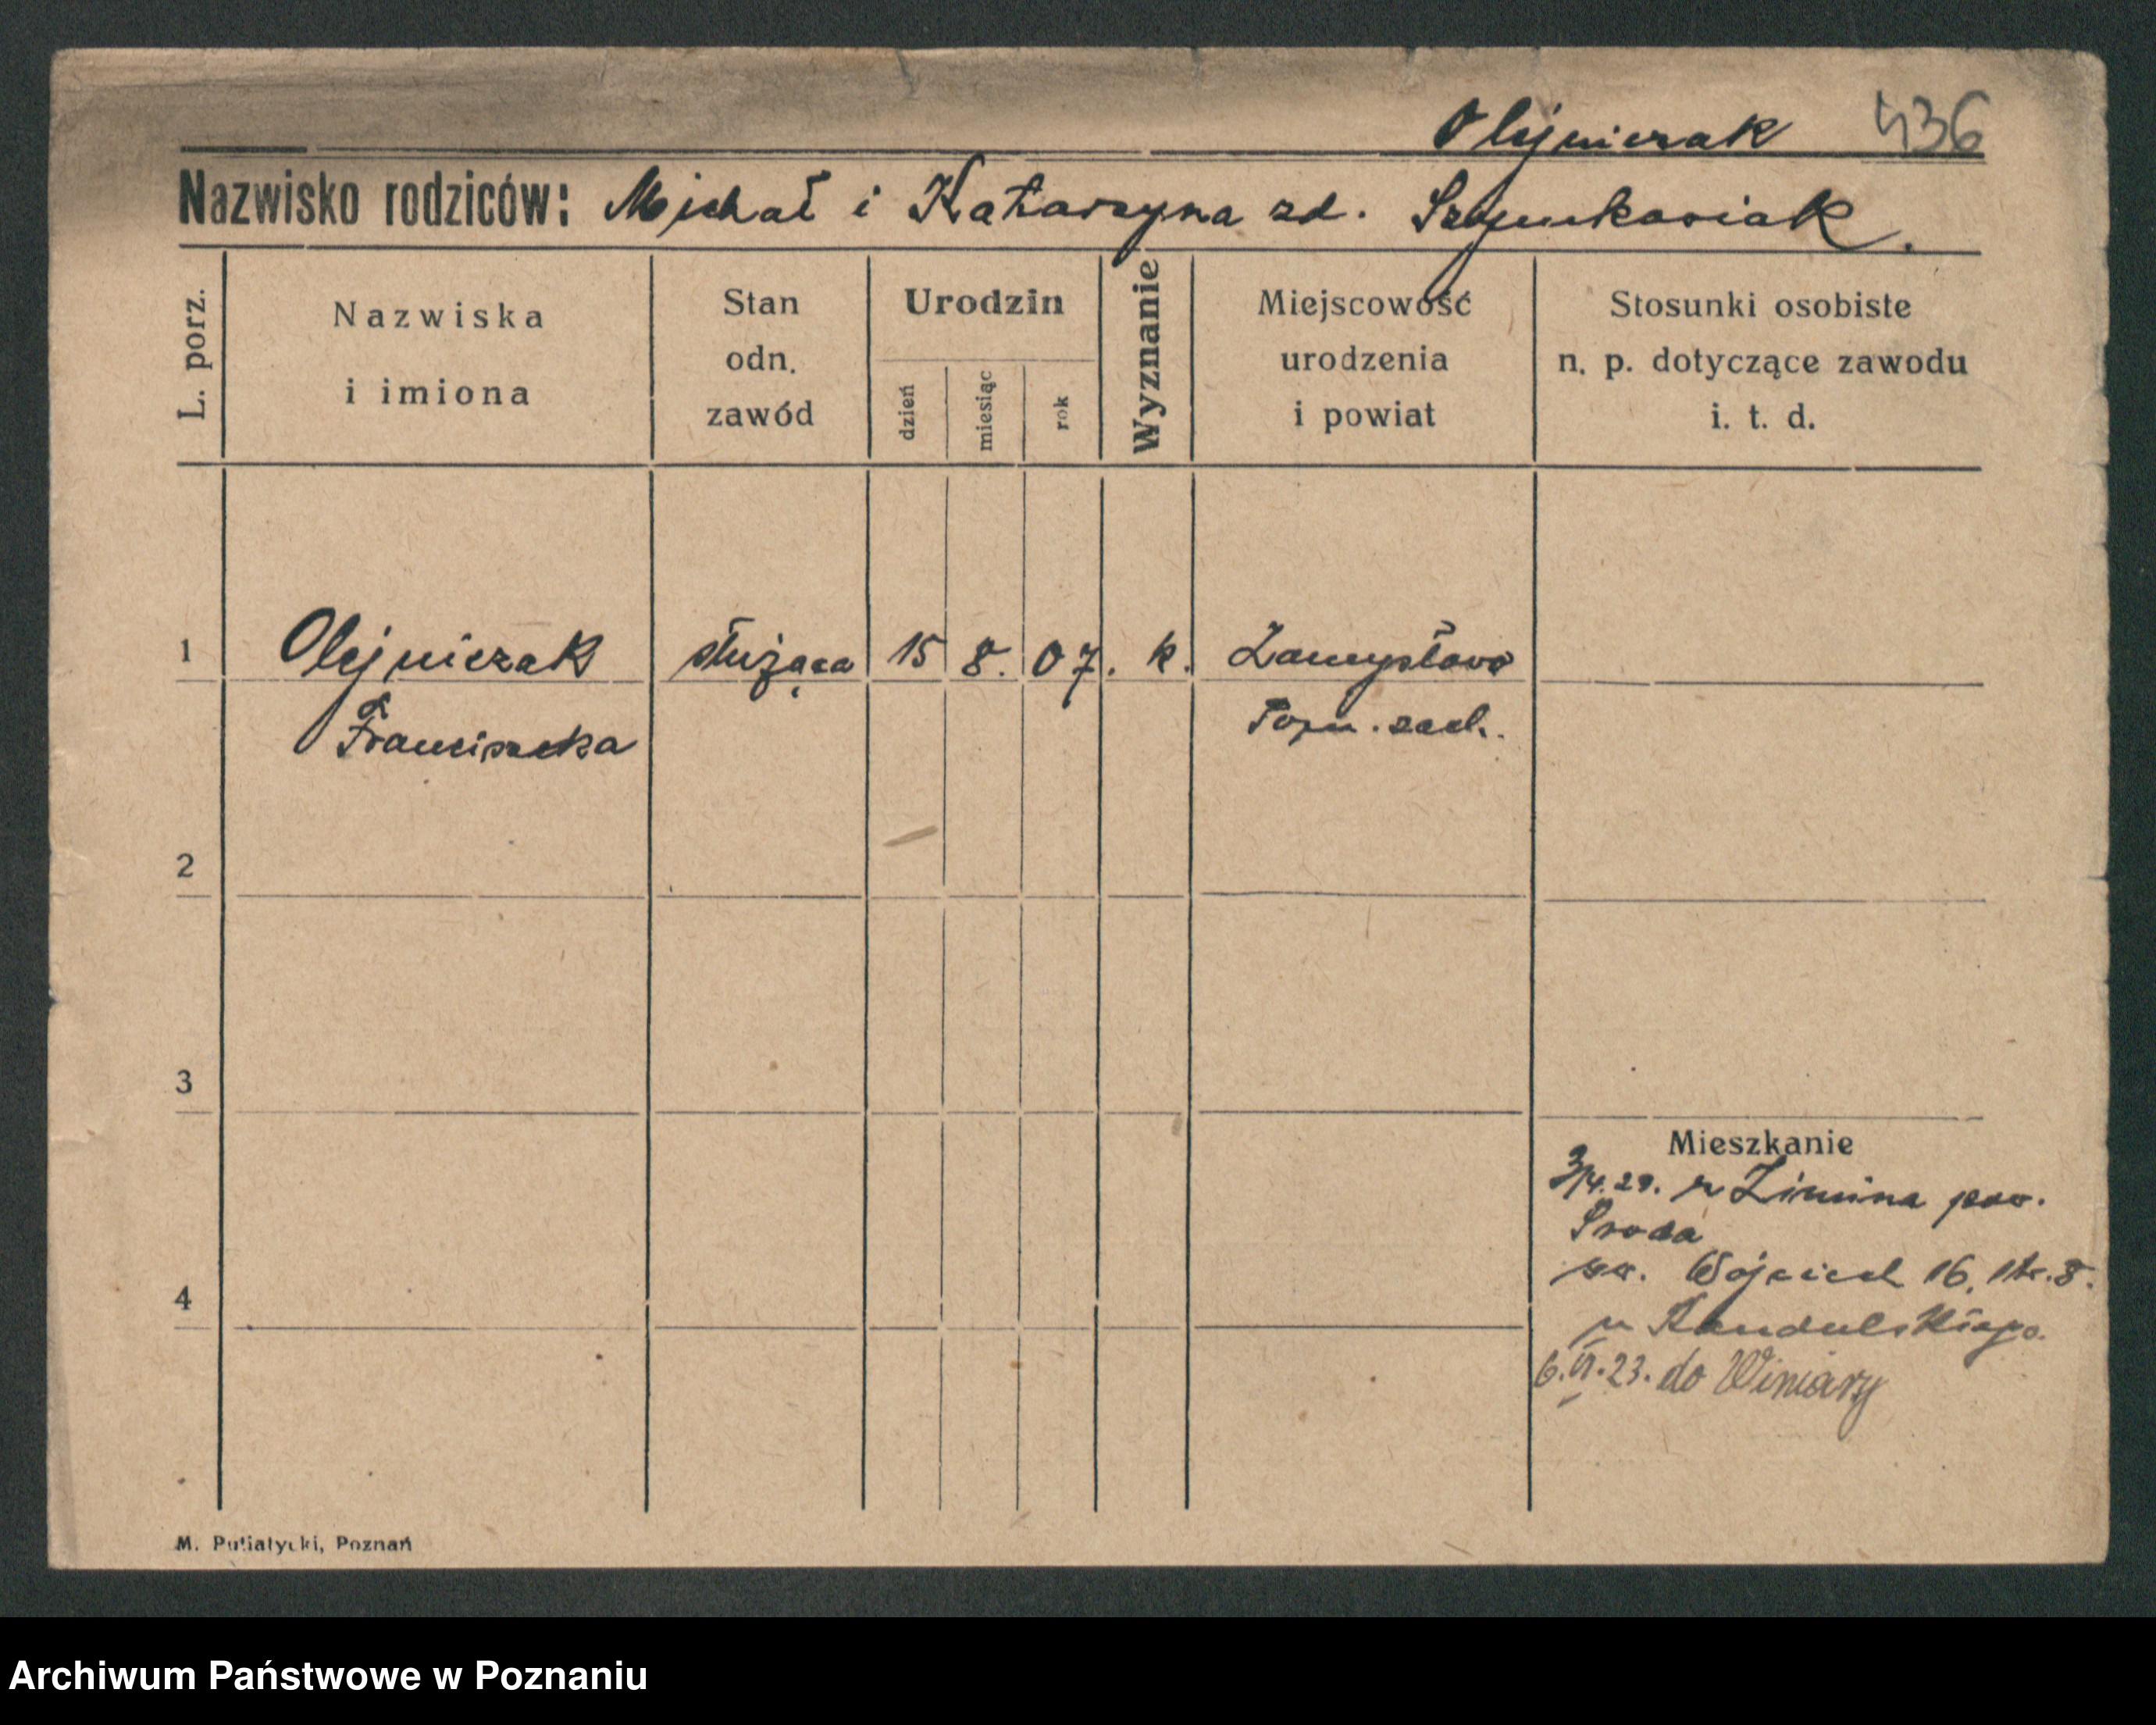 Olejniczak 436
Nazwisko rodziców: Michał i Katarzyna zd. Szymkowiak.
L. porz.
Nazwiska
i imiona
Stan
odn.
zawód
Urodzin
dzień
miesiąc
rok
Wyznanie
Miejscowość
urodzenia
i powiat
Stosunki osobiste
n. p. dotyczące zawodu
i. t. d.
1 Olejniczak służąca 15 8. 07. k. Zamysłowo
Franciszka Pozn. zach.
2
3
4
Mieszkanie
3/4.29. z Zimina pow.
Środa
św. Wojciech 16, Itr. 8.
u Kandulskiego.
6.VI.23. do Winiary
M. Putiatycki, Poznań
Archiwum Państwowe w Poznaniu